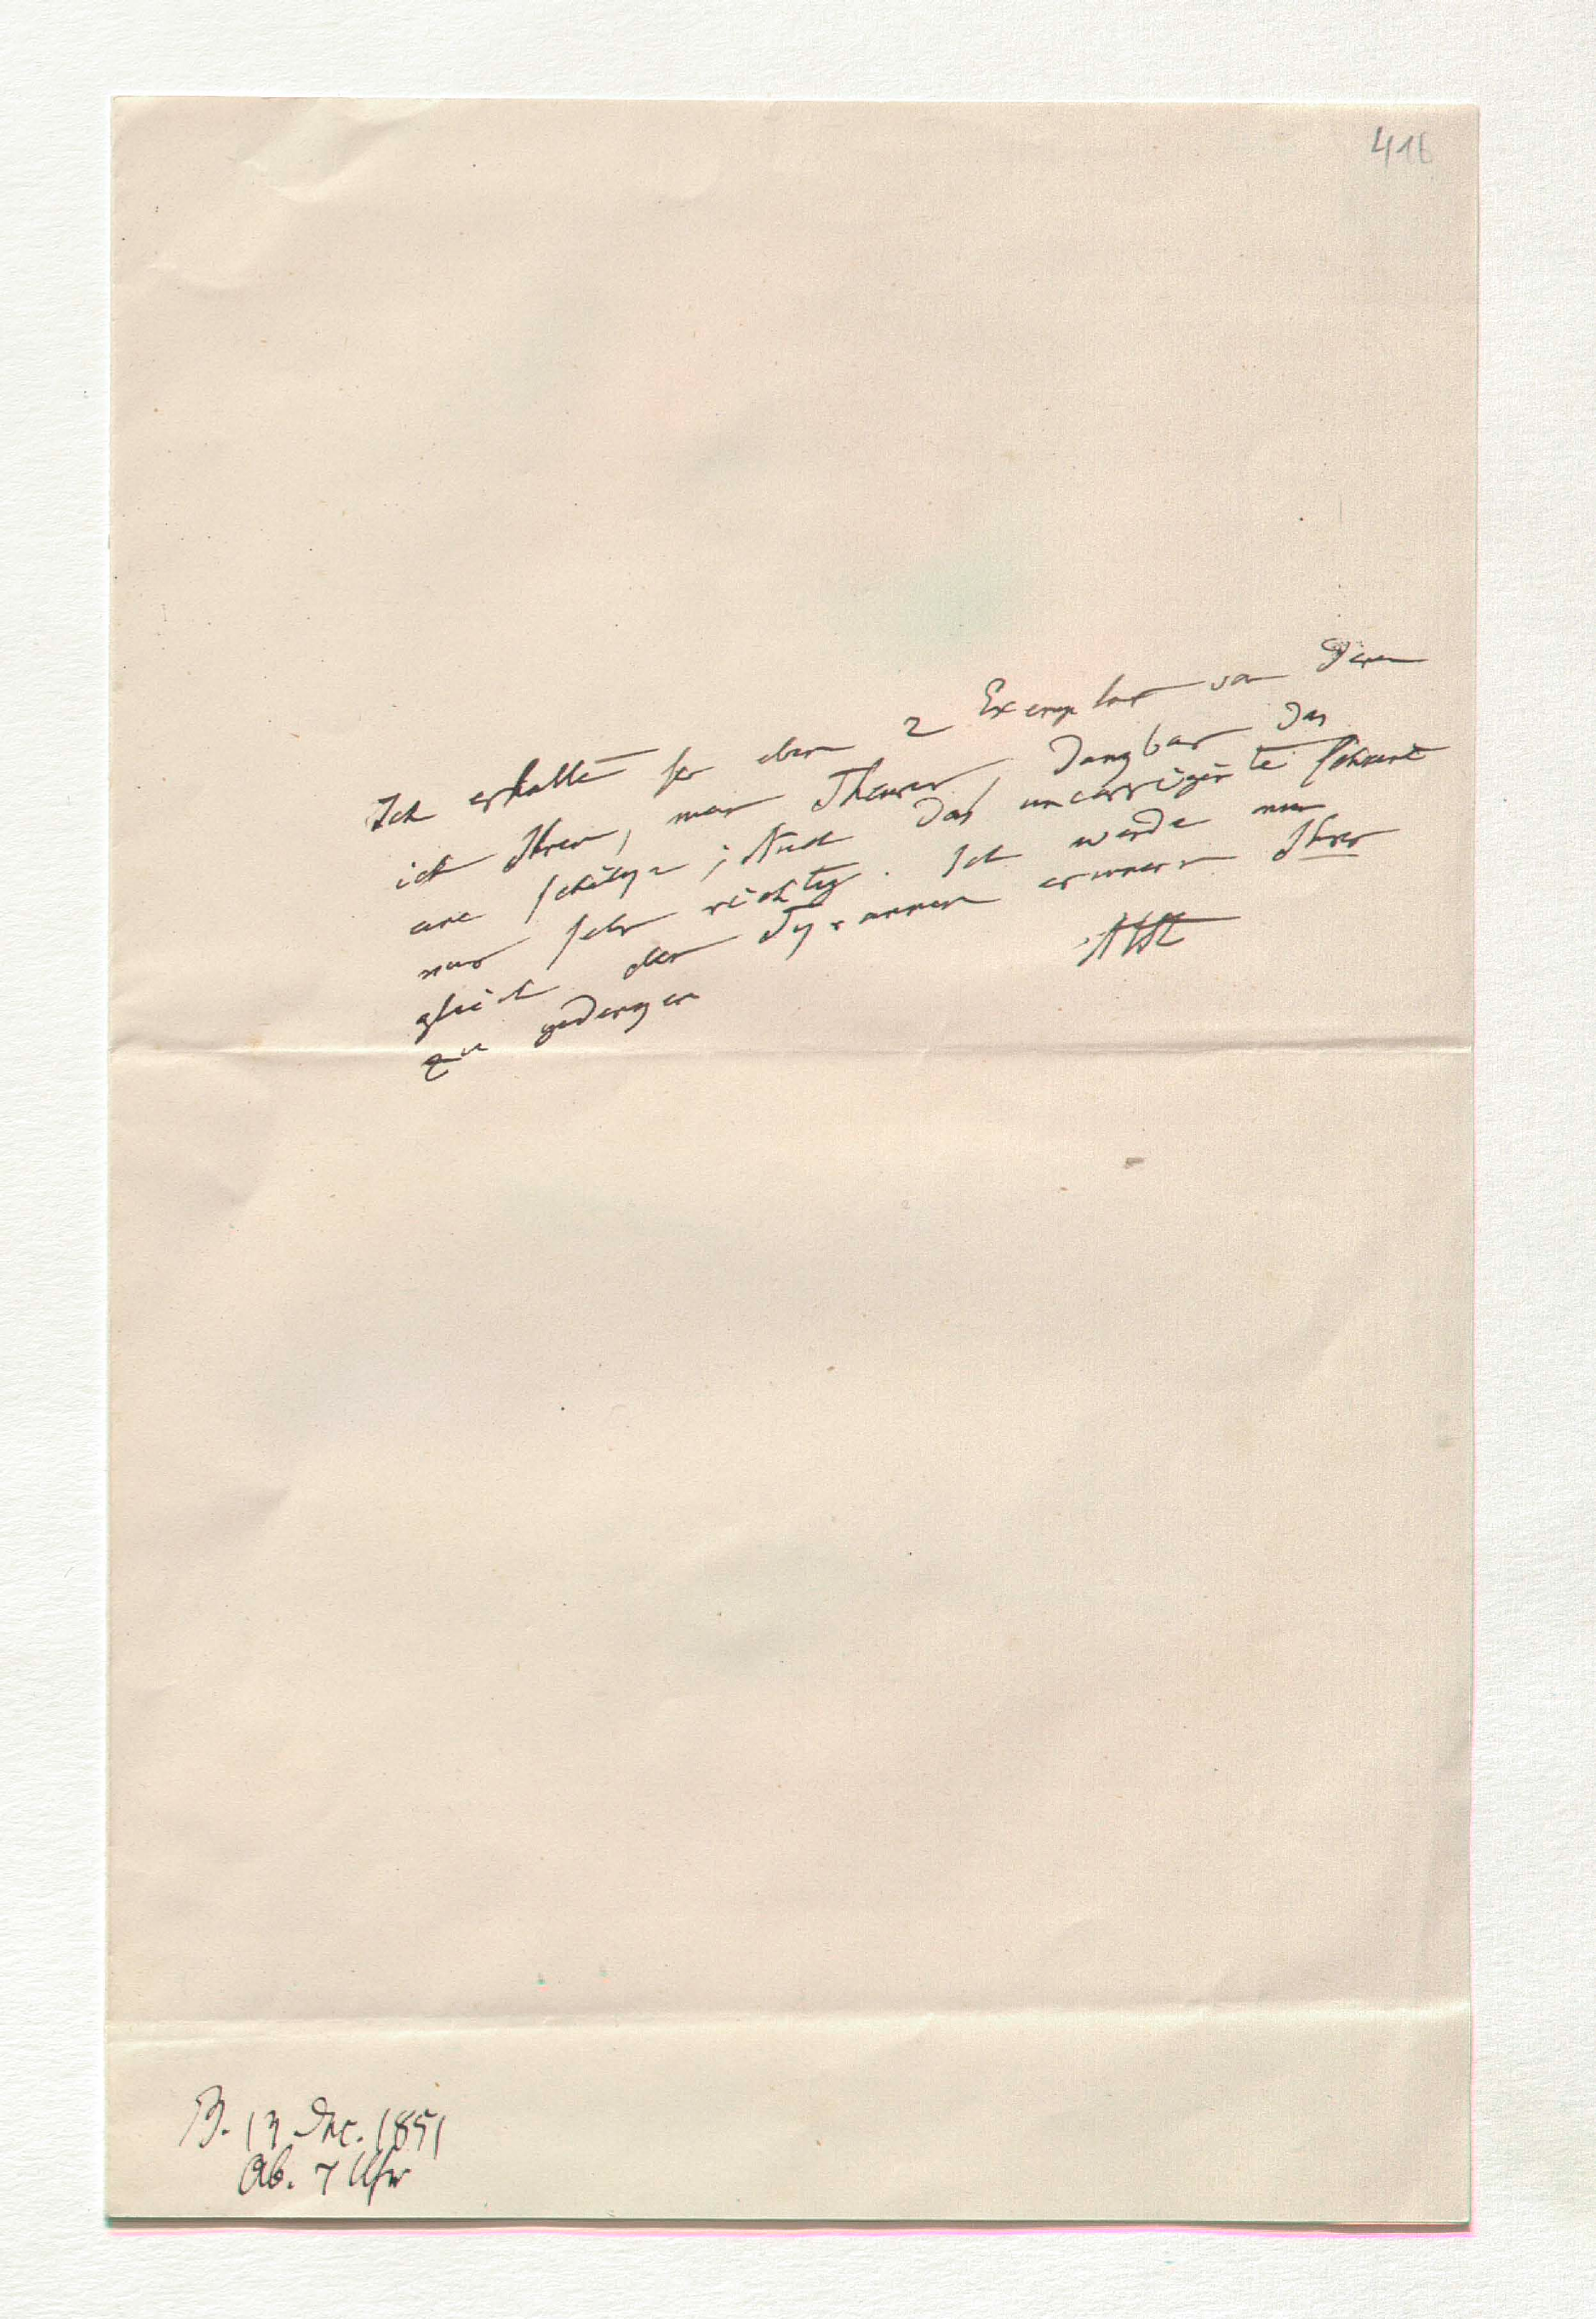 416
Ich erhalte so eben 2 Exemplare von denen
ich Ihnen, mein Theurer, dankbar das
eine schicke; Auch das uncorrigirte scheint
mir sehr richtig. Ich werde nun
gleich den Tyrannen erinnern Ihrer
zu gedenken
AHt
B. 13 Dec. 1851
Ab. 7 Uhr